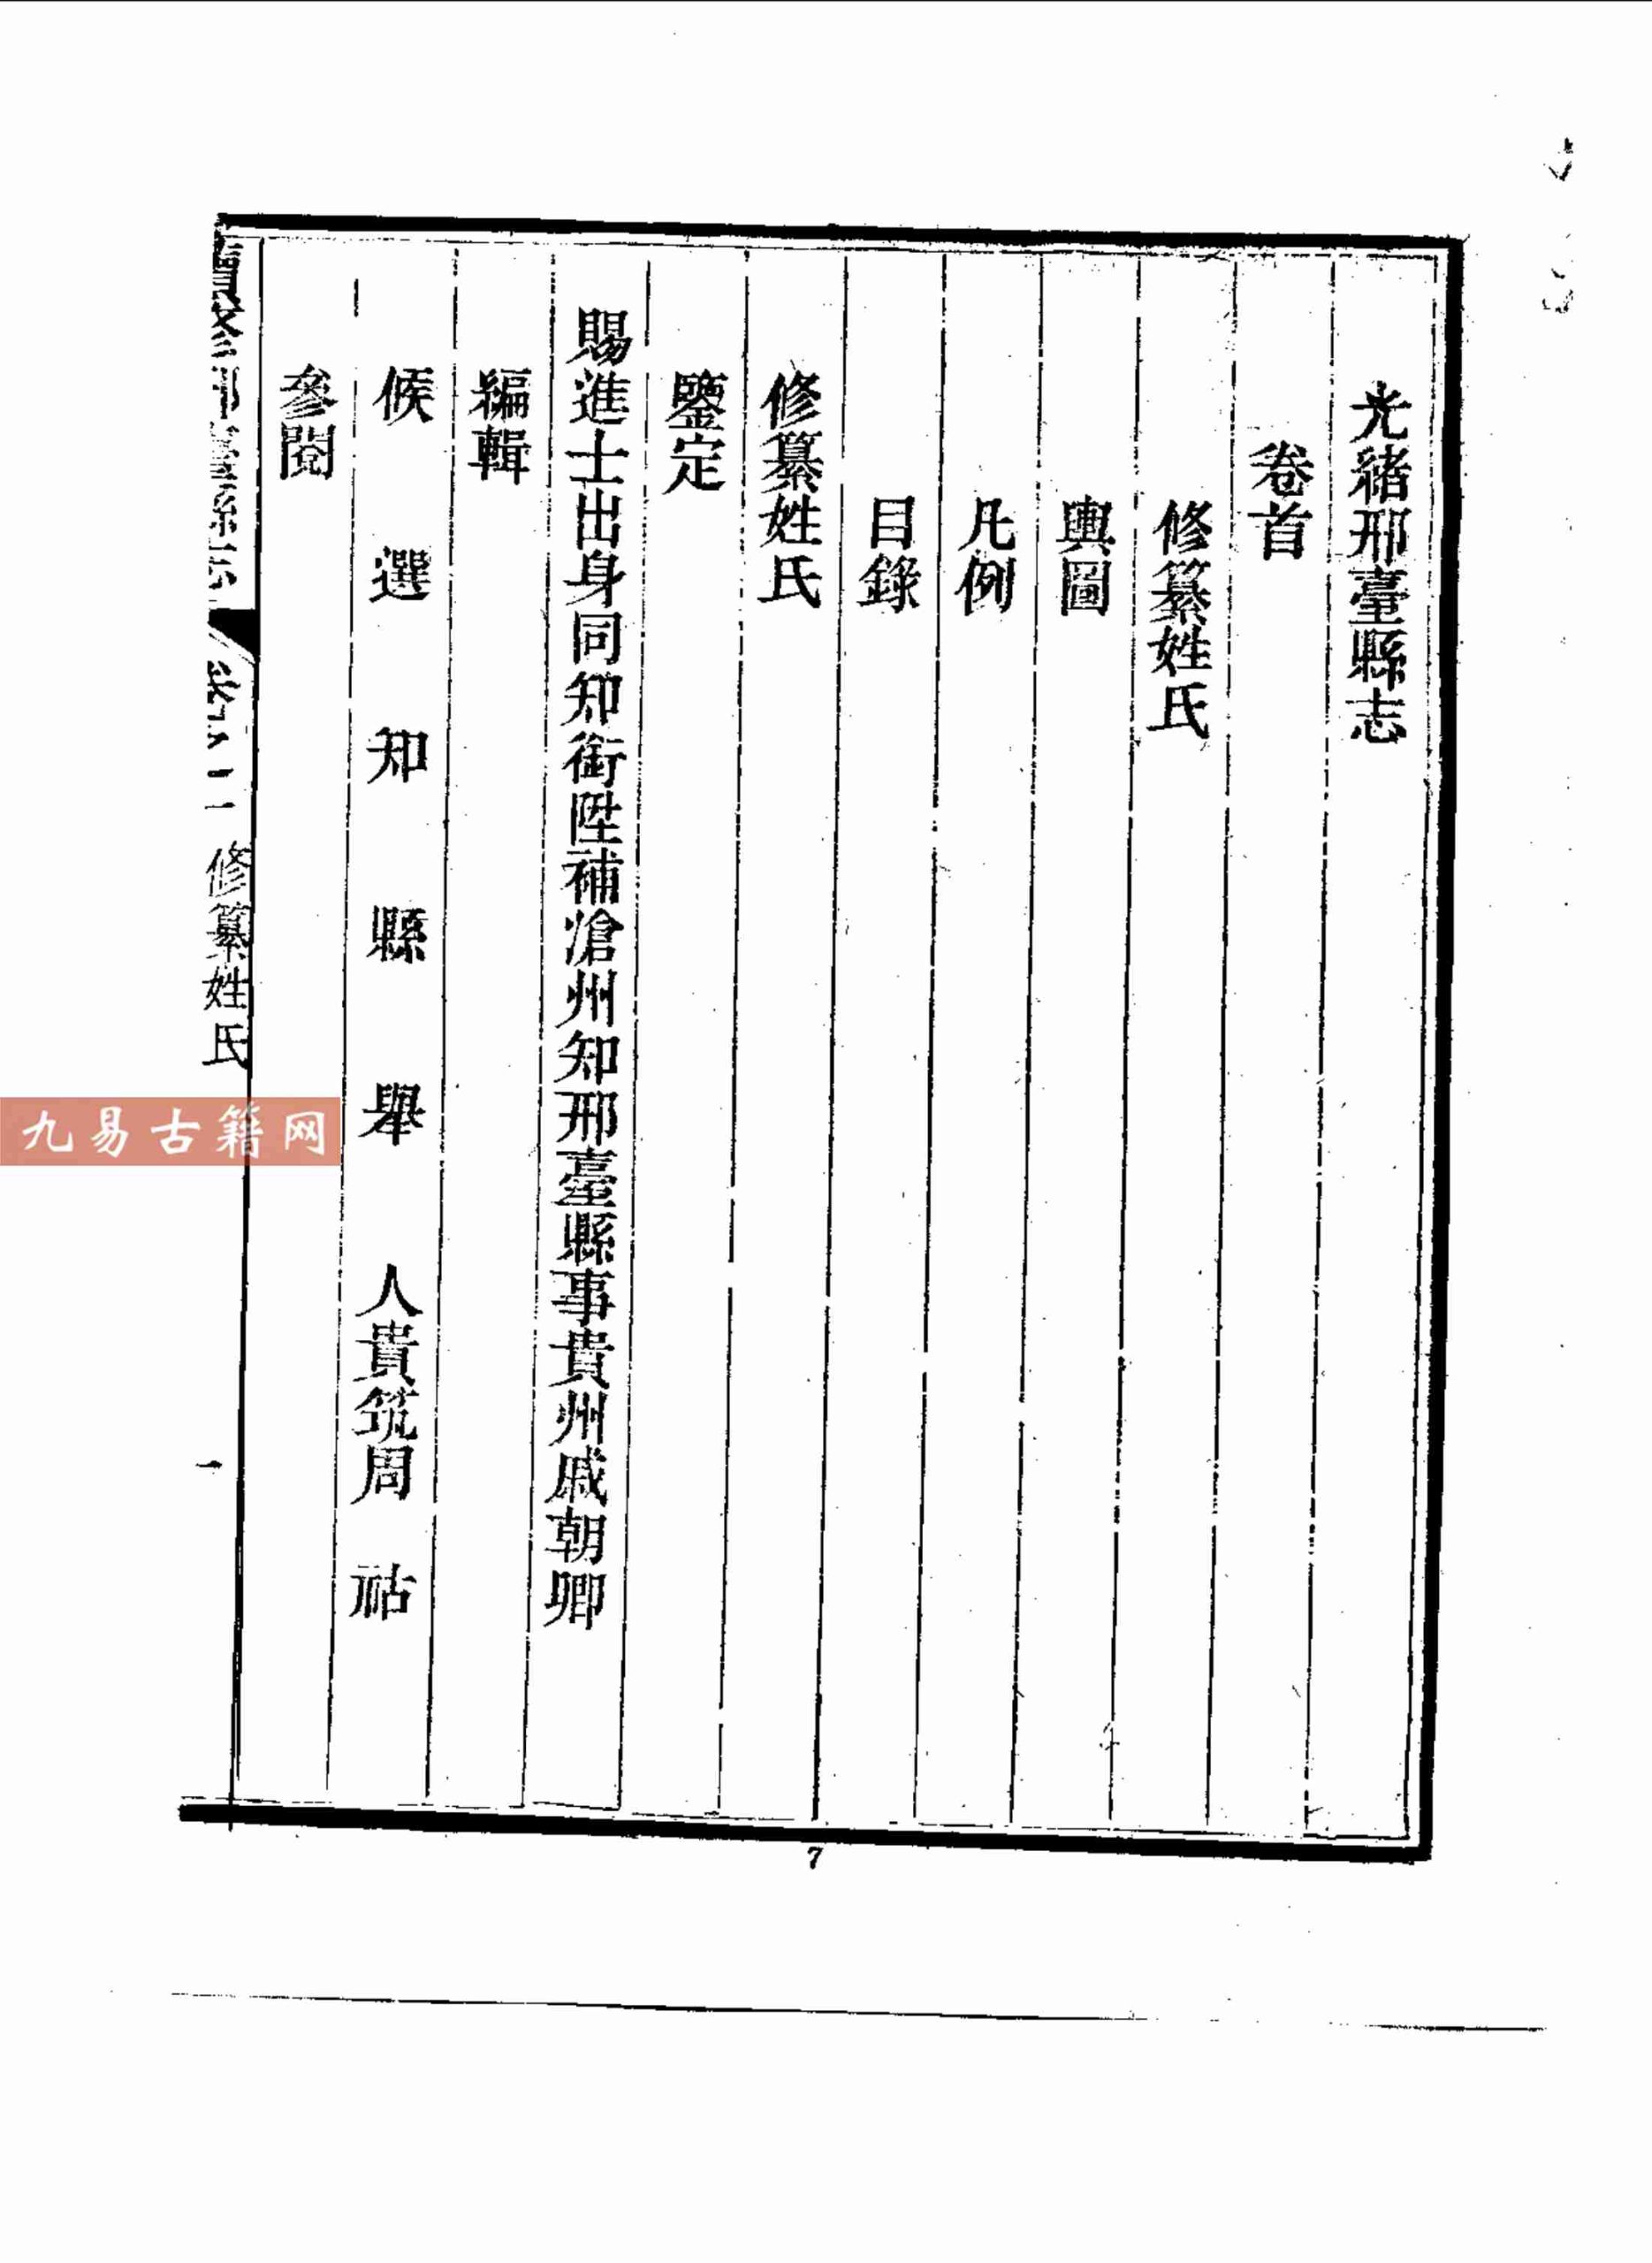 光緒邢臺縣志
卷首
修纂姓氏
輿圖
凡例
目錄
修纂姓氏
鑒定
賜進士出身同知銜陞補滄州知邢臺縣事貴州戚朝卿
編輯
候選知縣舉人貴筑周祜
參閱
修纂姓氏
一
7
九易古籍网